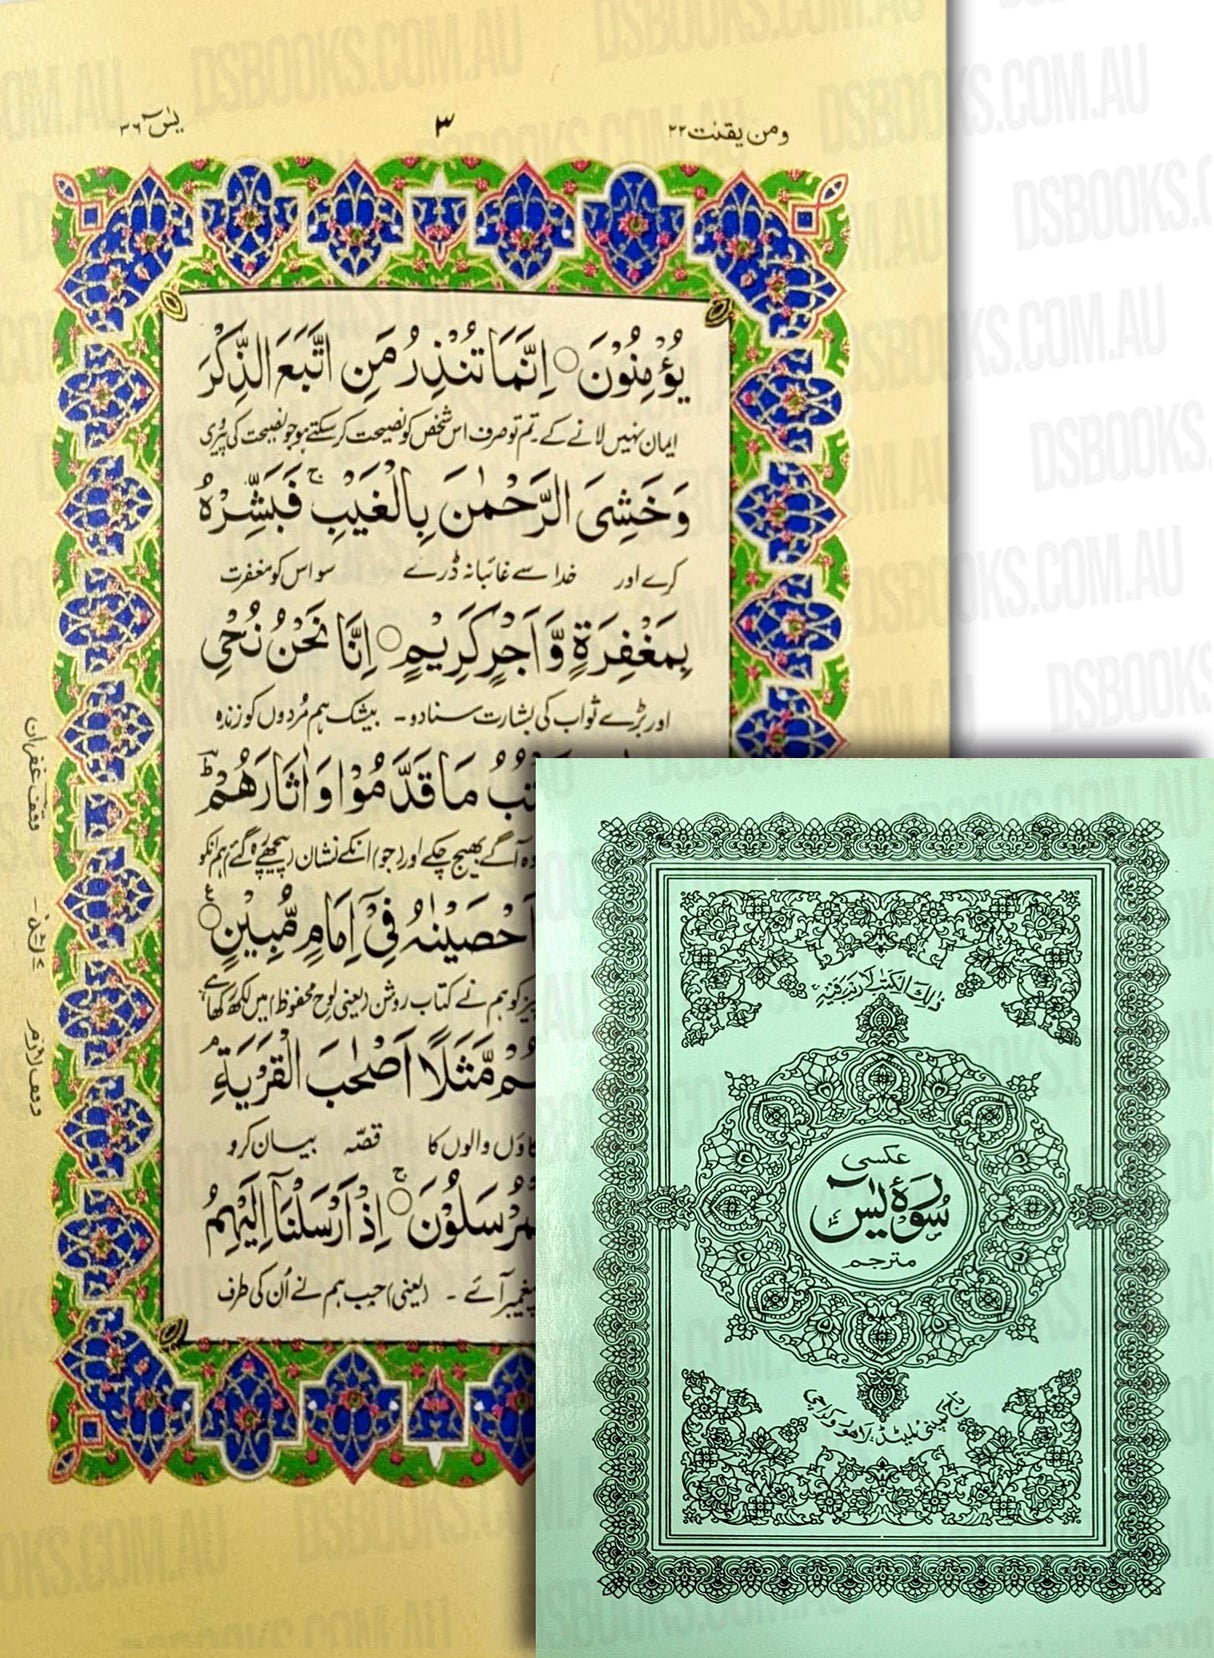 ومن یقنت ۲۲
۳
یٰسٓ ۳۶
یُؤْمِنُوْنَ ○ اِنَّمَا تُنْذِرُ مَنِ اتَّبَعَ الذِّكْرَ
ایمان نہیں لانے کے۔ تم تو صرف اس شخص کو نصیحت کر سکتے ہو جو نصیحت کی پیروی
وَخَشِیَ الرَّحْمٰنَ بِالْغَیْبِ ۚ فَبَشِّرْهُ
کرے اور خدا سے غائبانہ ڈرے سو اس کو مغفرت
بِمَغْفِرَةٍ وَّاَجْرٍ كَرِیْمٍ ○ اِنَّا نَحْنُ نُحْیِ
اور بڑے ثواب کی بشارت سنا دو - بیشک ہم مُردوں کو زندہ
تُبُ مَا قَدَّمُوْا وَاٰثَارَهُمْ ؕ
وہ آگے بھیج چکے اور (جو) انکے نشان (پیچھے رہ گئے ہم انکو
اَحْصَیْنٰهُ فِیْۤ اِمَامٍ مُّبِیْنٍ ○ ع
چیز کو ہم نے کتاب روشن (یعنی لوح محفوظ) میں لکھ رکھا ہے
هُمْ مَّثَلًا اَصْحٰبَ الْقَرْیَةِ ۘ
گاؤں والوں کا قصّہ بیان کرو
الْمُرْسَلُوْنَ ○ ۚ اِذْ اَرْسَلْنَاۤ اِلَیْهِمُ
پیغمبر آئے - (یعنی) جب ہم نے اُن کی طرف
وقف غفران
وقف لازم
ذٰلِكَ الْكِتٰبُ لَا رَیْبَ فِیْهِ
عکسی
سُوْرَۂ یٰسٓ
مترجم
تاج کمپنی لمیٹڈ لاھور۔کراچی
DSBOOKS.COM.AU